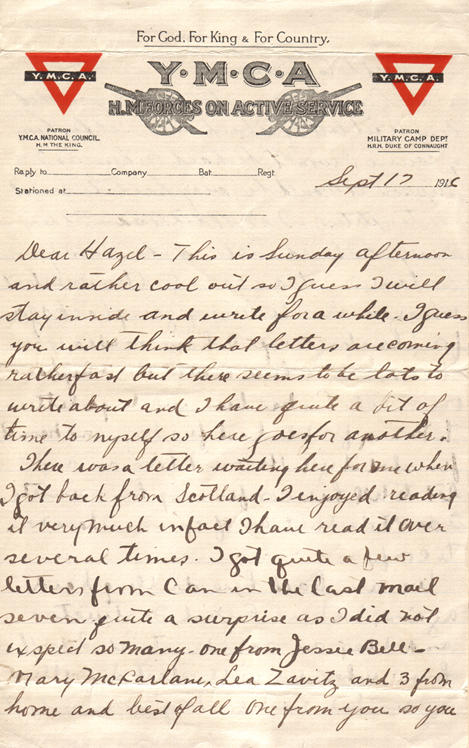 For God, For King & For Country.
Y.M.C.A.
Y·M·C·A
Y.M.C.A.
H.M. FORCES ON ACTIVE SERVICE
PATRON
Y.M.C.A. NATIONAL COUNCIL.
H.M. THE KING.
PATRON
MILITARY CAMP DEPT
H.R.H. DUKE OF CONNAUGHT
Reply to Company Bat. Regt
Stationed at
Sept 17 1916
Dear Hazel - This is Sunday afternoon
and rather cool out so I guess I will
stay inside and write for a while. I guess
you will think that letters are coming
rather fast but there seems to be lots to
write about and I have quite a bit of
time to myself so here goes for another.
There was a letter waiting here for me when
I got back from Scotland - I enjoyed reading
it very much in fact I have read it over
several times. I got quite a few
letters from Can in the last mail
seven quite a surprise as I did not
expect so many - one from Jessie Bell -
Mary McFarlane, Lea Zavitz and 3 from
home and best of all one from you so you